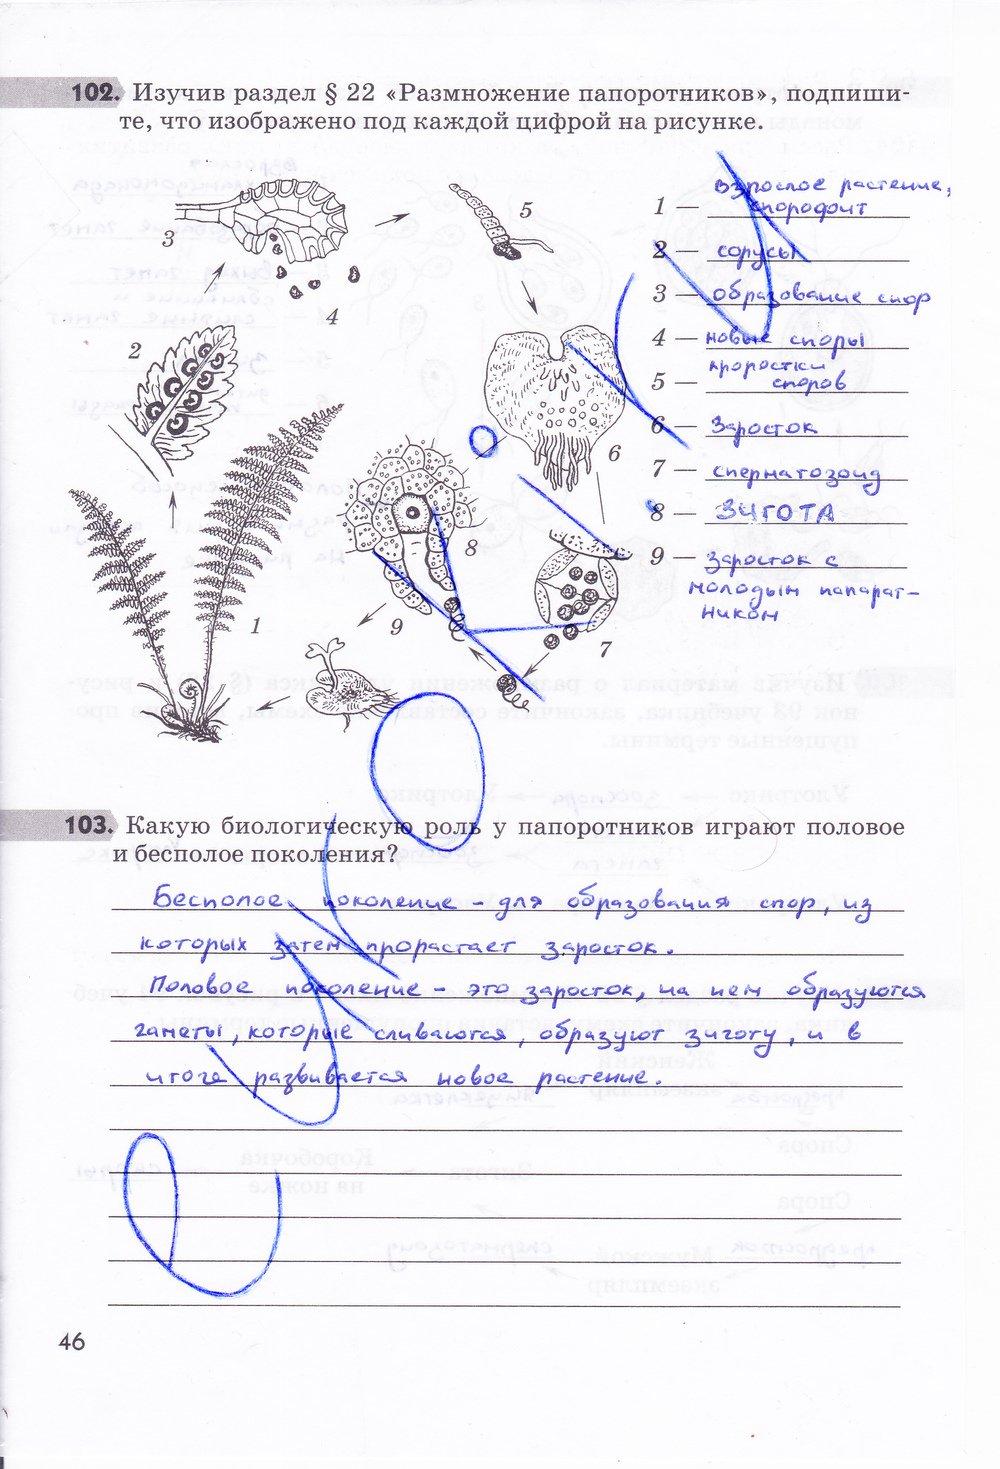 102. Изучив раздел § 22 «Размножение папоротников», подпиши-
те, что изображено под каждой цифрой на рисунке.
3
4
5
2
6
1
8
9
7
1 — взрослое растение,
спорофит
2 — сорусы
3 — образование спор
4 — новые споры
5 — проростки
споров
6 — Заросток
7 — сперматозоид
8 — ЗИГОТА
9 — заросток с
молодым папарат-
ником
103. Какую биологическую роль у папоротников играют половое
и бесполое поколения?
Бесполое поколение – для образования спор, из
которых затем прорастает заросток.
Половое поколение – это заросток, на нем образуются
гаметы, которые сливаются, образуют зиготу, и в
итоге развивается новое растение.
46